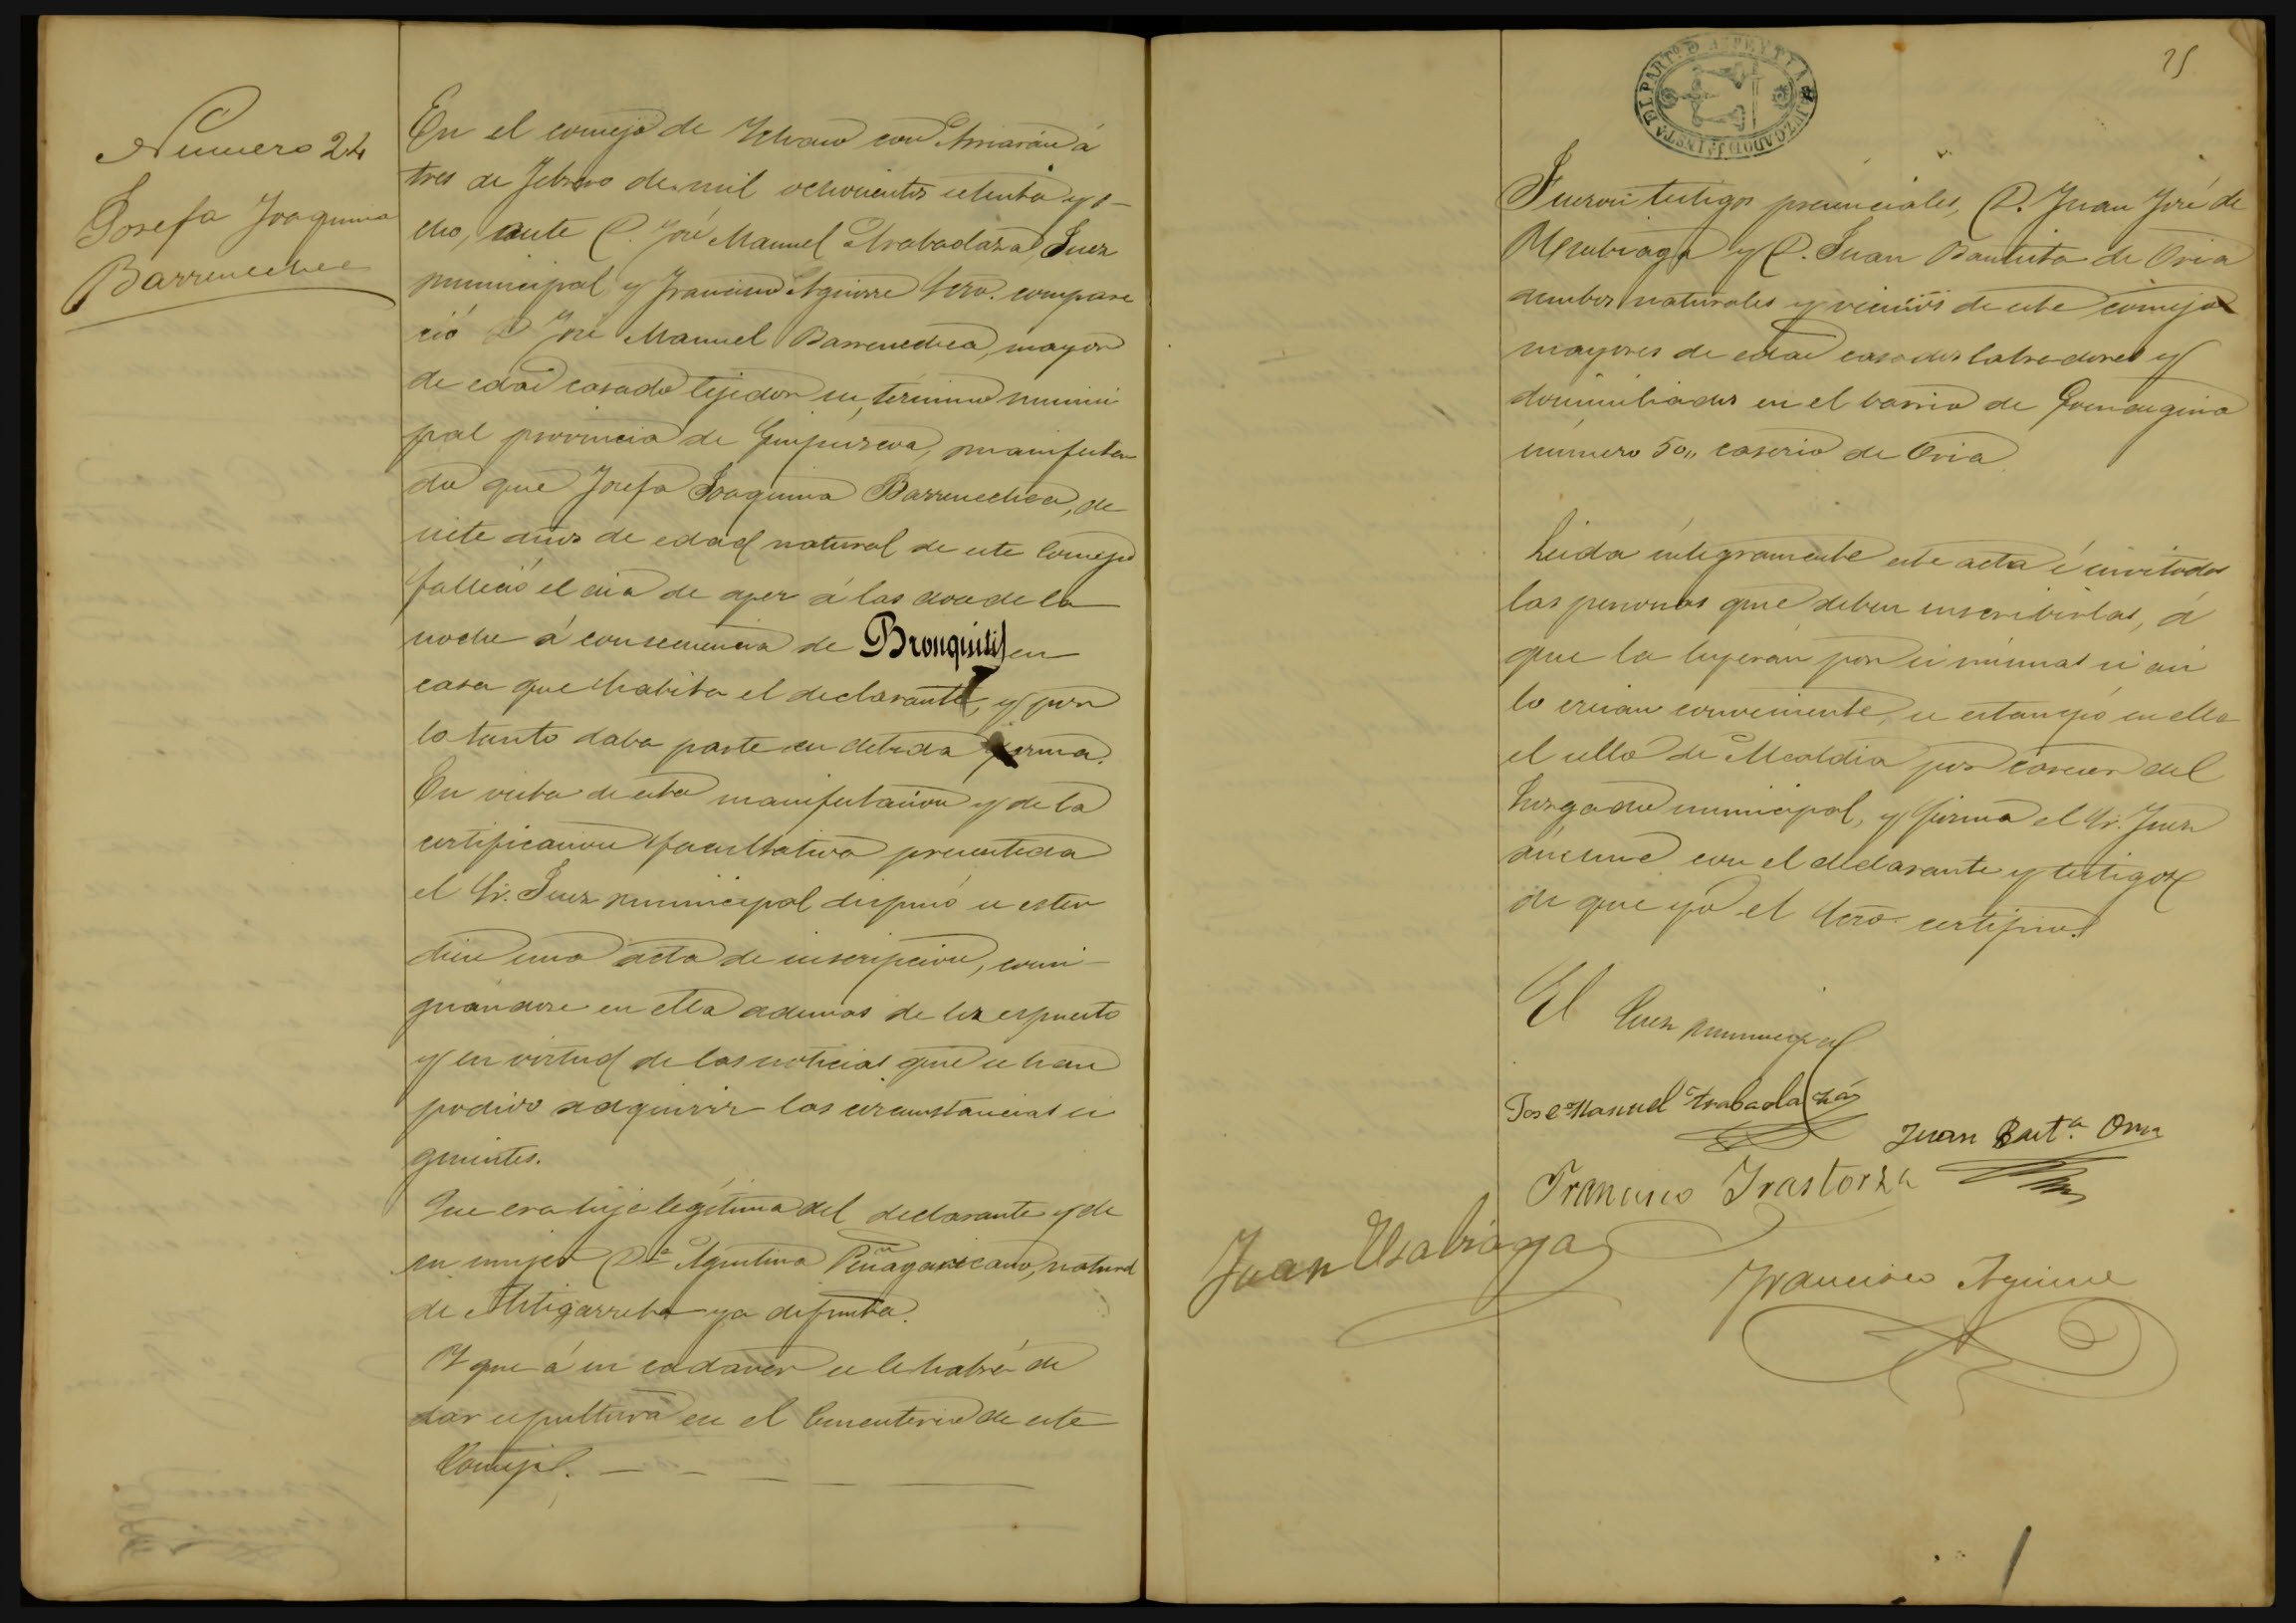 Numero 24
Josefa Joaquina
Barrenechea
En el consejo de Ichaso con Arriarán á
tres de Febrero de mil ochocientos setenta y o-
cho, ante D. José Manuel Arabaolaza, Juez
municipal y Francisco Aguirre Srio. compare
ció D José Manuel Barrenechea, mayor
de edad casado tejedor su término munici
pal provincia de Guipúzcoa, manifestan
do que Josefa Joaquina Barrenechea, de
siete años de edad natural de este Consejo
falleció el dia de ayer á las doce de la
noche á consecuencia de Bronquitis en
casa que habita el declarante, y por
lo tanto daba parte en debida forma.
En vista de esta manifestacion y de la
certificacion facultativa presentada
el Sr. Juez municipal dispuso se esten
diese una acta de inscripcion, consi-
gnandose en ella ademas de lo espuesto
y en virtud de las noticias que se han
podido adquirir las circunstancias si
guientes.
Que era hija legítima del declarante y de
su mujer Dª Agustina Peñagaricano, natural
de Astigarreta ya difunta.
Y que á su cadaver se le habrá de
dar sepultura en el Cementerio de este
Consejo.
25
JUZGADO D 1ª INSTª DL PARTº D AZPEYTIA
Fueron testigos presenciales, D. Juan José de
Usabiaga y D. Juan Bautista de Oria
ambos naturales y vecinos de este consejo
mayores de edad casados labradores y
domiciliados en el barrio de
número 50,, caserio de Oria
Leida íntegramente este acta é invitadas
las personas que deben suscribirlas, á
que la leyeran por si mismas si asi
lo creian conveniente, se estampó en ella
el sello de Alcaldia por carecer del
Juzgado municipal, y firma el Sr. Juez
con el declarante y testigos
de que yo el Srio. certifico.
El Juez municipal
Jose Manuel Arabaolaza
Juan Baut.ª Oria
Francisco Irastorza
Juan Usabiaga
Francisco Aguirre